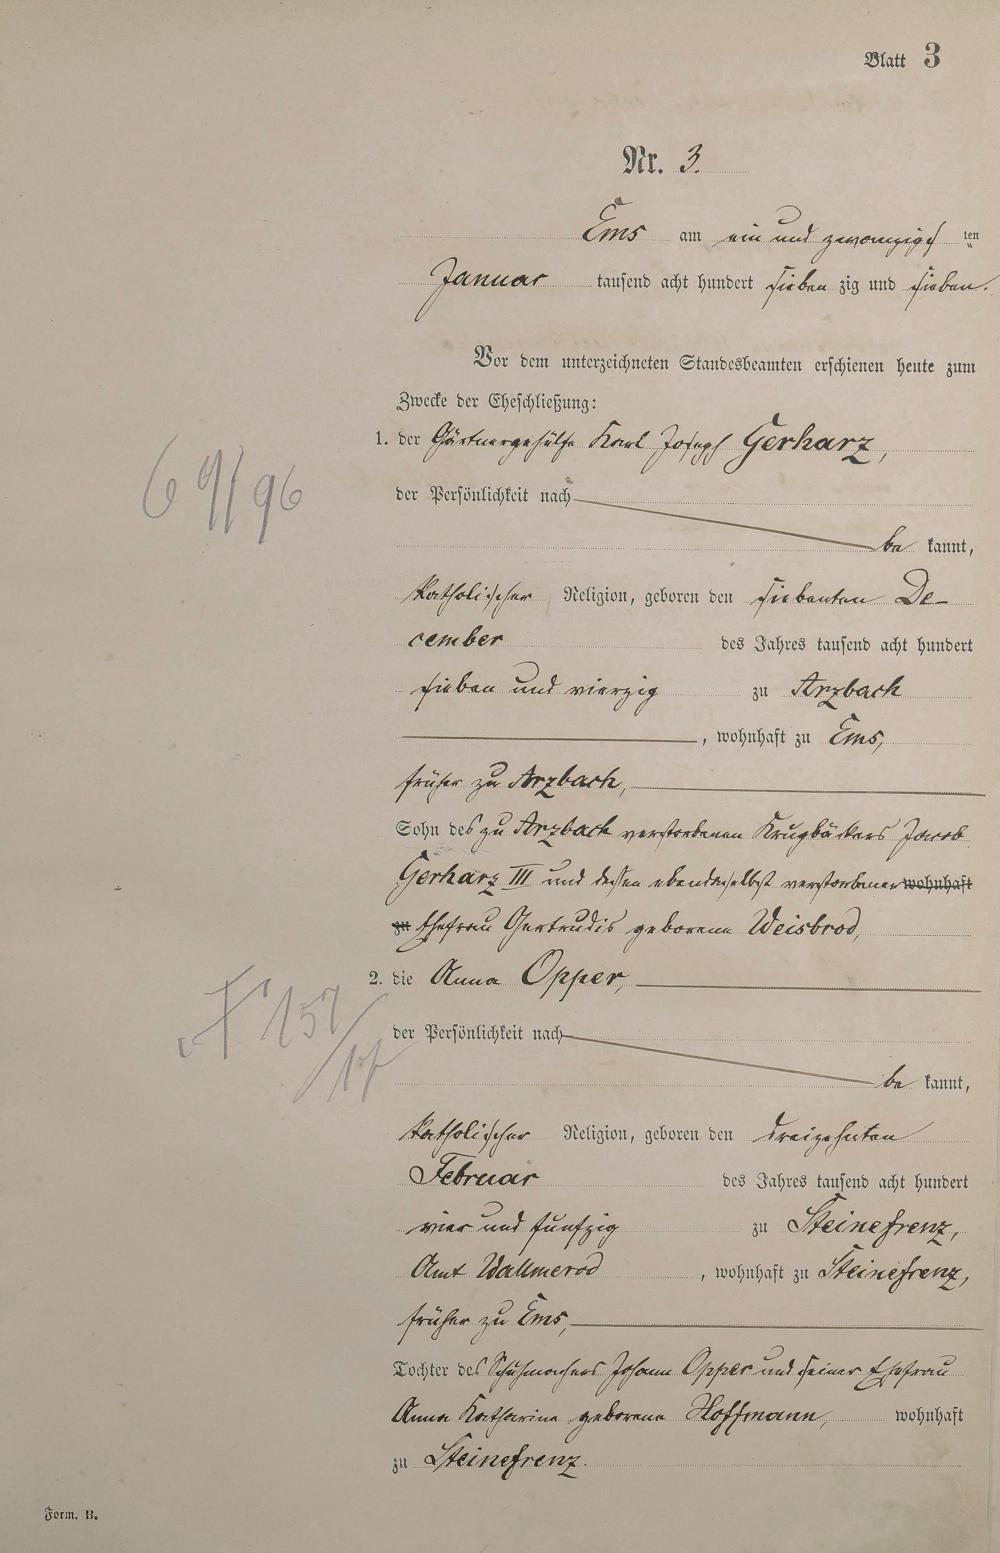 Blatt 3
Nr. 3.
Ems am ein und zwanzigs ten
Januar tausend acht hundert sieben zig und sieben.
Vor dem unterzeichneten Standesbeamten erschienen heute zum
Zwecke der Eheschließung:
1. der Gärtnergehülfe Karl Joseph Gerharz,
der Persönlichkeit nach
be kannt,
katholischer Religion, geboren den siebenten De-
cember des Jahres tausend acht hundert
sieben und vierzig zu Arzbach
, wohnhaft zu Ems,
früher zu Arzbach,
Sohn des zu Arzbach verstorbenen Krugbäckers Jacob
Gerharz III und dessen ebendaselbst verstorbener wohnhaft
zu Ehefrau Gertrudis geborene Weisbrod,
69/96
2. die Anna Opper,
der Persönlichkeit nach
be kannt,
157
katholischer Religion, geboren den dreizehnten
Februar des Jahres tausend acht hundert
vier und funfzig zu Steinefrenz,
Amt Wallmerod , wohnhaft zu Steinefrenz,
früher zu Ems,
Tochter des Schuhmachers Johann Opper und seiner Ehefrau
Anna Katharina geborene Hoffmann, wohnhaft
zu Steinefrenz.
Form. B.